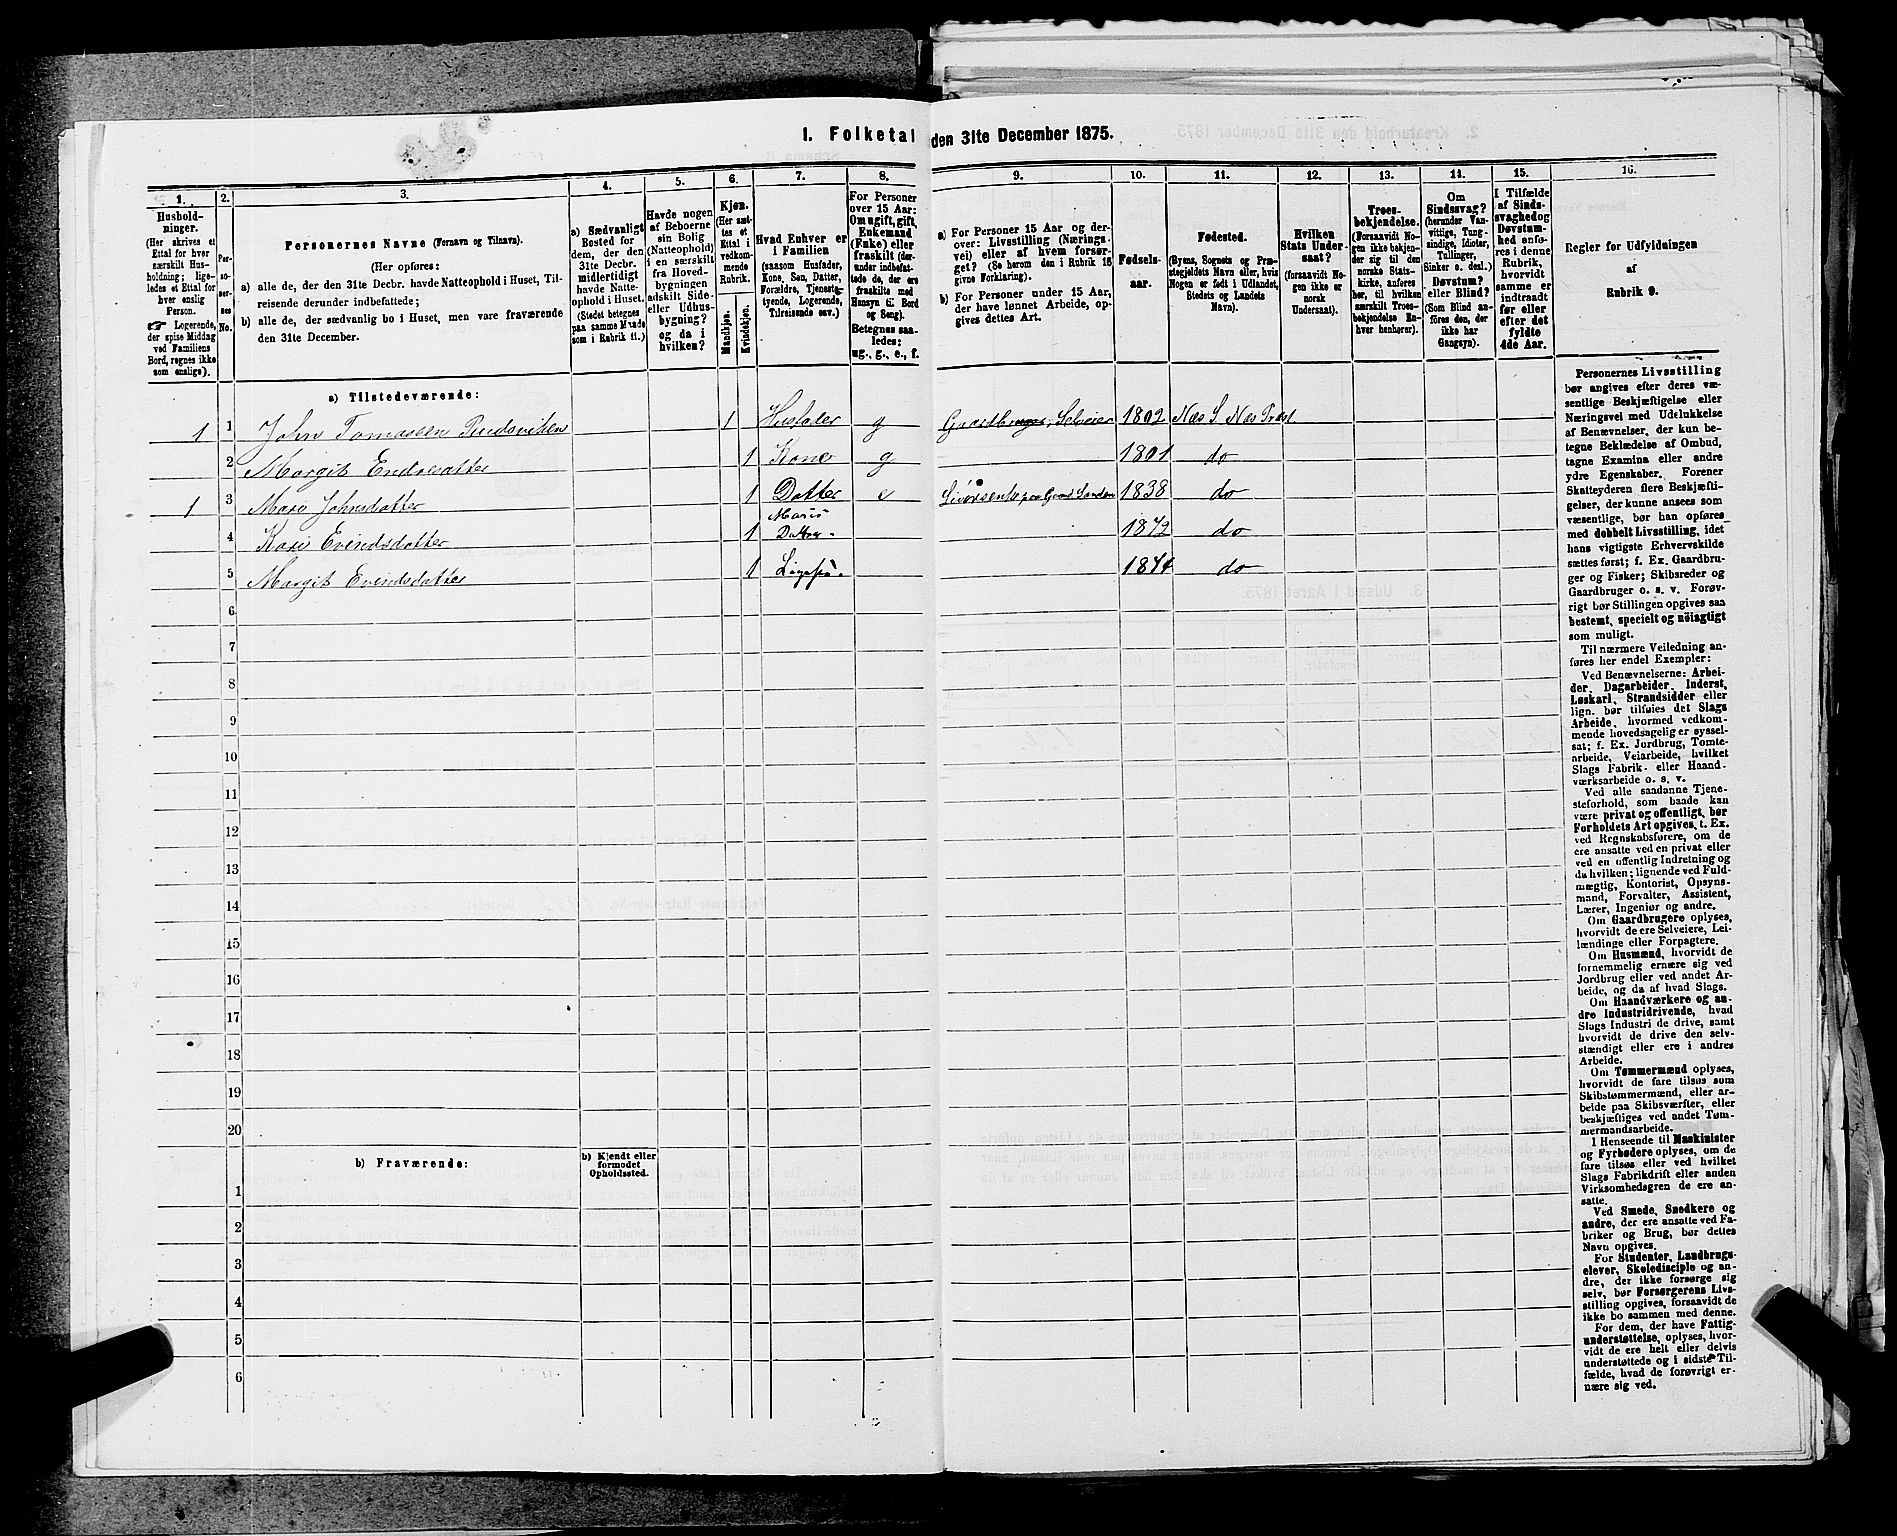 1. Folketal den 31te December 1875.
1. 2. 3. 4. 5. 6. 7. 8. 9. 10. 11. 12. 13. 14. 15. 16.
Husholdninger.
(Her skrives et
Ettal for hver
særskilt Husholdning;
ligeledes et Ettal for
hver enslig
Person.
☞ Logerende,
der spise Middag
ved Familiens
Bord, regnes ikke
som enslige).
Personernes No.
Personernes Navne (Fornavn og Tilnavn).
(Her opføres:
a) alle de, der den 31te Decbr. havde Natteophold i Huset, Tilreisende derunder indbefattede;
b) alle de, der sædvanlig bo i Huset, men vare fraværende
den 31te December.
a) Sædvanligt
Bosted for
dem, der den
31te Decbr.
midlertidigt
havde Natteophold
i Huset.
(Stedet betegnes
paa samme Maade
som i Rubrik 11.)
Havde nogen
af Beboerne
sin Bolig
(Natteophold)
i en særskilt
fra Hovedbygningen
adskilt Side-
eller Udhusbygning?
og da i
hvilken?
Kjøn.
(Her sættes et
Ettal i
vedkommende
Rubrik.
Mandkjøn.
Kvindekjøn.
Hvad Enhver er
i Familien
(saasom Husfader,
Kone, Søn, Datter,
Forældre, Tjenestetyende,
Logerende,
Tilreisende osv.)
For Personer
over 15 Aar:
Om ugift, gift,
Enkemand
(Enke) eller
fraskilt (derunder
indbefattede de, der ere
fraskilte med
Hensyn til Bord
og Seng).
Betegnes saaledes:
ug., g., e., f.
a) For Personer 15 Aar og derover: Livsstilling (Næringsvei) eller af hvem forsørget? (Se herom den i Rubrik 16
givne Forklaring).
b) For Personer under 15 Aar,
der have lønnet Arbeide, opgives dettes Art.
Fødselsaar.
Fødested.
(Byens, Sognets og Præstegjeldets Navn eller, hvis
Nogen er født i Udlandet,
Stedets og Landets
Navn).
Hvilken
Stats Undersaat?
(forsaavidt Nogen ikke er
norsk
Undersaat).
Troesbekjendelse.
(Forsaavidt Nogen ikke bekjender sig til den
norske Statskirke, anføres
her, til hvilken
særskilt Troesbekjendelse Enhver henhører).
Om
Sindssvag?
(herunder Vanvittige, Tungsindige, Idioter,
Tullinger,
Sinker o. desl.)
Døvstum?
eller Blind?
(Som Blind anføres den, der
ikke har
Gangsyn).
I Tilfælde
af Sindssvaghed og
Døvstumhed anføres i denne
Rubrik,
hvorvidt
samme er
indtraadt
før eller
efter det
fyldte
4de Aar.
Regler for Udfyldningen
af
Rubrik 9.
a) Tilstedeværende:
1 1 John Tomassen 1 Husfader g Gaardbruger, Selveier 1802 Næs S. Næs Præst.
2 Margit Endresdatter 1 Kone g 1801 do
1 3 Mari Johnsdatter 1 Datter e 1838 do
4 Kari Evindsdatter 1 Maris Datter 1872 do
5 Margit Evindsdatter 1 1874 do
6
7
8
9
10
11
12
13
14
15
16
17
18
19
20
b) Fraværende:
b) Kjendt eller
formodet
Opholdssted.
1
2
3
4
5
6
Personernes Livsstilling
bør angives efter deres væsentlige Beskjæftigelse eller
Næringsvei med Udelukkelse
af Benævnelser, der kun betegne Beklædelse af Ombud,
tagne Examina eller andre
ydre Egenskaber. Forener
Skatteyderen flere Beskjæftigelser, der kunne ansees som
væsentlige, bør han opføres
med dobbelt Livsstilling, idet
hans vigtigste Erhvervskilde
sættes først; f. Ex. Gaardbruger og Fisker; Skibsreder og
Gaardbruger o. s. v. Forøvrigt bør Stillingen opgives saa
bestemt, specielt og nøiagtigt
som muligt.
Til nærmere Veiledning anføres her endel Exempler:
Ved Benævnelserne: Arbeider, Dagarbeider, Inderst,
Løskarl, Strandsidder eller
lign. bør tilføies det Slags
Arbeide, hvormed vedkommende hovedsagelig er sysselsat; f. Ex. Jordbrug, Tomtearbeide, Veiarbeide, hvilket
Slags Fabrik- eller Haandværksarbeide o. s. v.
Ved alle saadanne Tjenesteforhold, som baade kan
være privat og offentligt, bør
Forholdets Art opgives, t. Ex.
ved Regnskabsførere, om de
ere ansatte ved en privat eller
ved en offentlig Indretning og
da hvilken; lignende ved Fuldmægtig, Kontorist, Opsynsmand, Forvalter, Assistent,
Lærer, Ingeniør og andre.
Om Gaardbrugere oplyses,
hvorvidt de ere Selveiere, Leilændinge eller Forpagtere.
Om Husmænd, hvorvidt de
fornemmelig ernære sig ved
Jordbrug eller ved andet Arbeide, og da af hvad Slags.
Om Haandværkere og andre Industridrivende, hvad
Slags Industri de drive, samt
hvorvidt de drive den selvstændigt eller ere i andres
Arbeide.
Om Tømmermænd oplyses,
hvorvidt de fare tilsøs som
Skibstømmermænd, eller arbeide paa Skibsværfter, eller
beskjæftiges ved andet Tømmermandsarbeide.
I Henseende til Maskinister
og Fyrbødere oplyses, om de
fare tilsøs eller ved hvilket
Slags Fabrikdrift eller anden
Virksomhedsgren de ere ansatte.
Ved Smede, Snedkere og
andre, der ere ansatte ved Fabriker og Brug, bør dettes
Navn opgives.
For Studenter, Landbrugselever, Skoledisciple og andre, der ikke forsørge sig
selv, bør Forsørgerens Livsstilling opgives, forsaavidt de
ikke bo sammen med denne.
For dem, der have Fattigunderstøttelse, oplyses, hvorvidt de ere helt eller delvis
understøttede og i sidste Tilfælde, hvad de forøvrigt ernære sig ved.